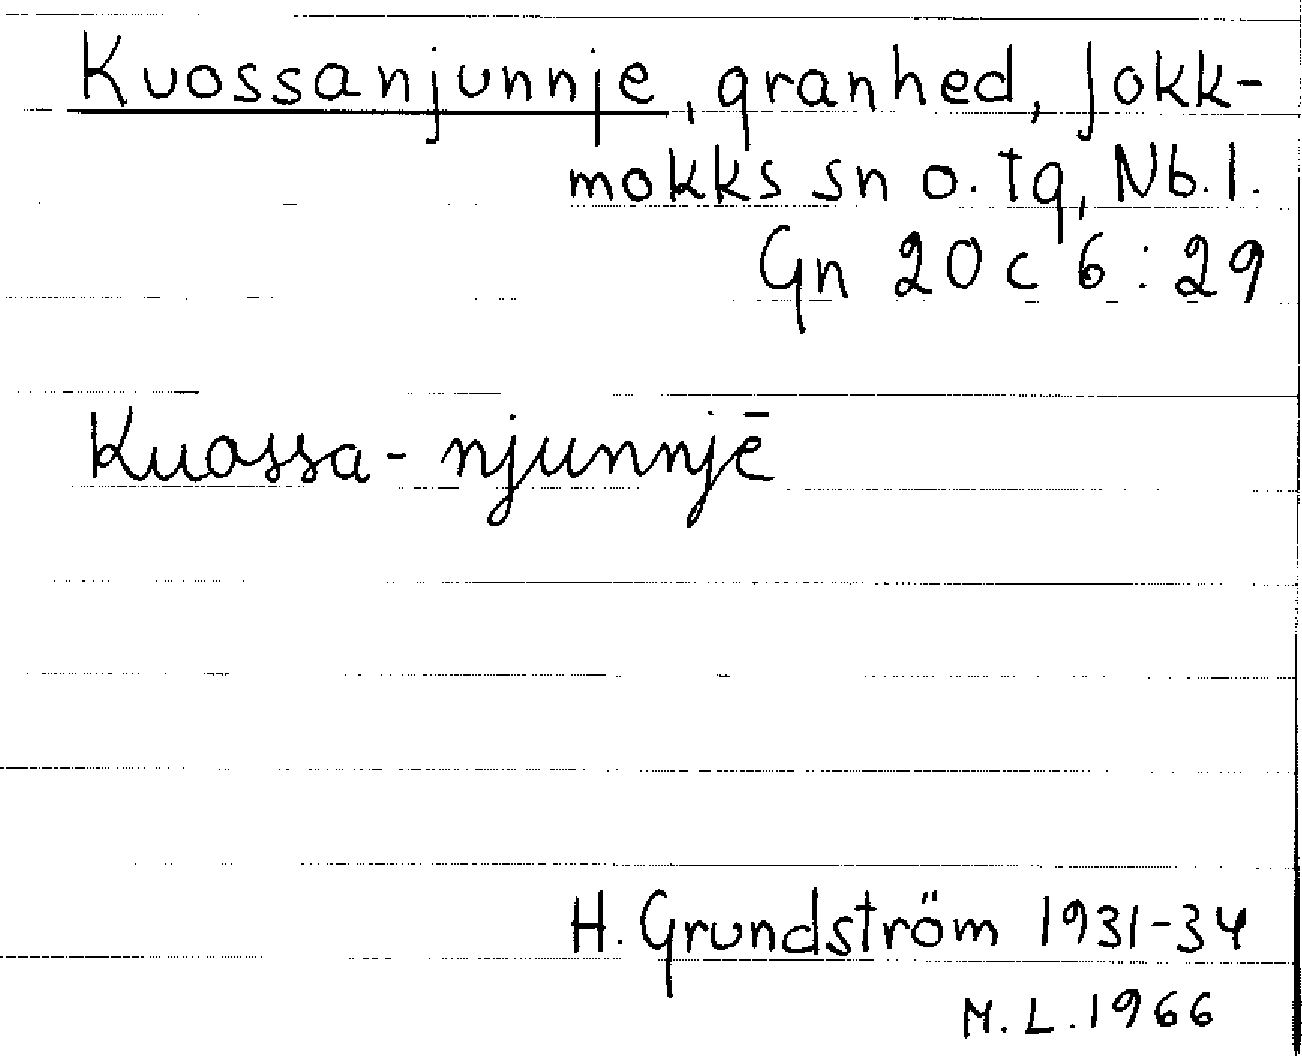 Kuossanjunnje, granhed, Jokk-
mokks sn o. tg, Nb. l.
Gn 20 c 6 : 29
Kuossa- njunnjē
H. Grundström 1931-34
M. L. 1966